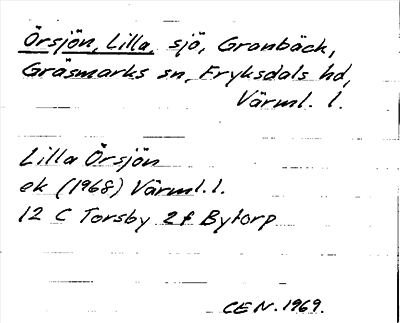 Örsjön, Lilla, sjö, Granbäck,
Gräsmarks sn, Fryksdals hd,
Värml. l.
Lilla Örsjön
ek (1968) Värml. l.
12 C Torsby 2f Bytorp
CEN. 1969.